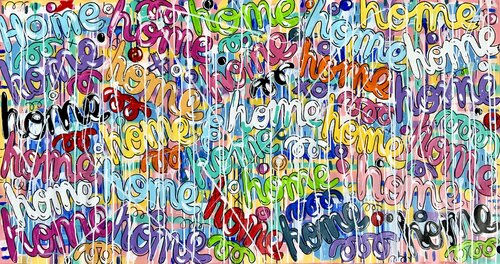 home home home home home
home home home home
home home home home home
home home home home
home home home home home
home home home home
home home home home home